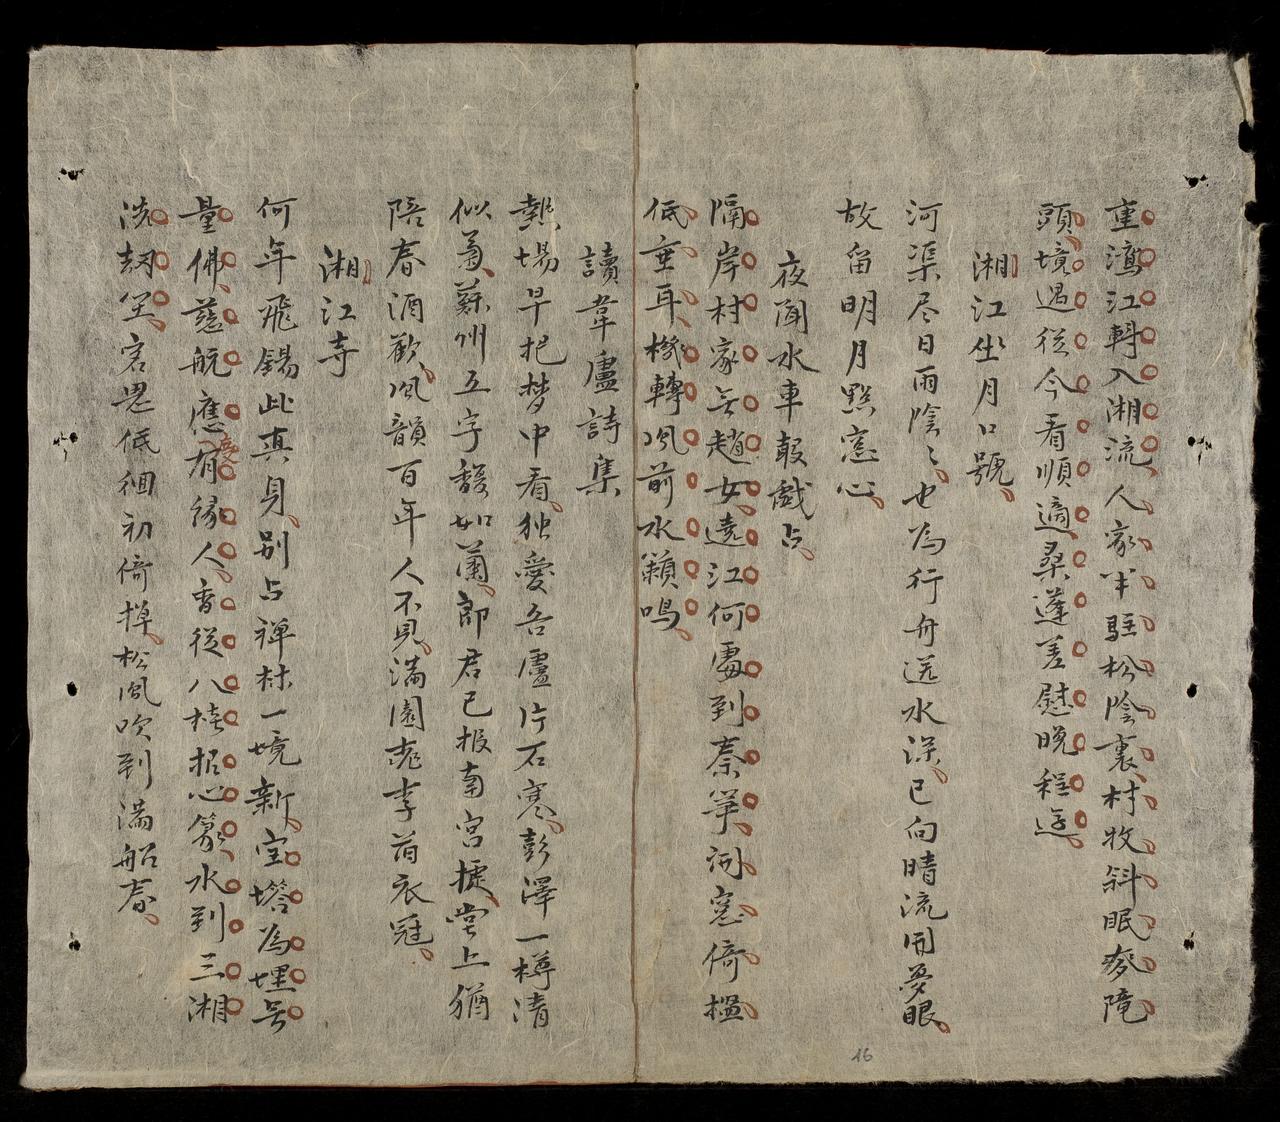 重灘江轉入湘流人家半駐松陰裏村牧斜眠麥隴
頭境遇從今看順適桑蓬差慰晚程遊
湘江坐月口號
河渠尽日雨陰〻也為行舟送水深已向晴流開夢眼
故留明月點窓心
夜聞水車戲占
隔岸村家無趙女遠江何處到秦箏詞窓倚搵
低垂耳機轉風前水籟鳴
讀韋盧詩集
熱場早把梦中看独愛吾盧片石寒彭澤一樽清
似菊蘇州五字馥如蘭郎君已报南宮捷堂上猶
陪春酒歡風韻百年人不見滿園桃李萏衣冠
湘江寺
何年飛錫此真身别占禅林一境新宝塔為埋无
量佛慈航應度有緣人香從八桂招心篆水到三湘
洗刼尘客思低徊初倚棹松風吹到滿船春
16